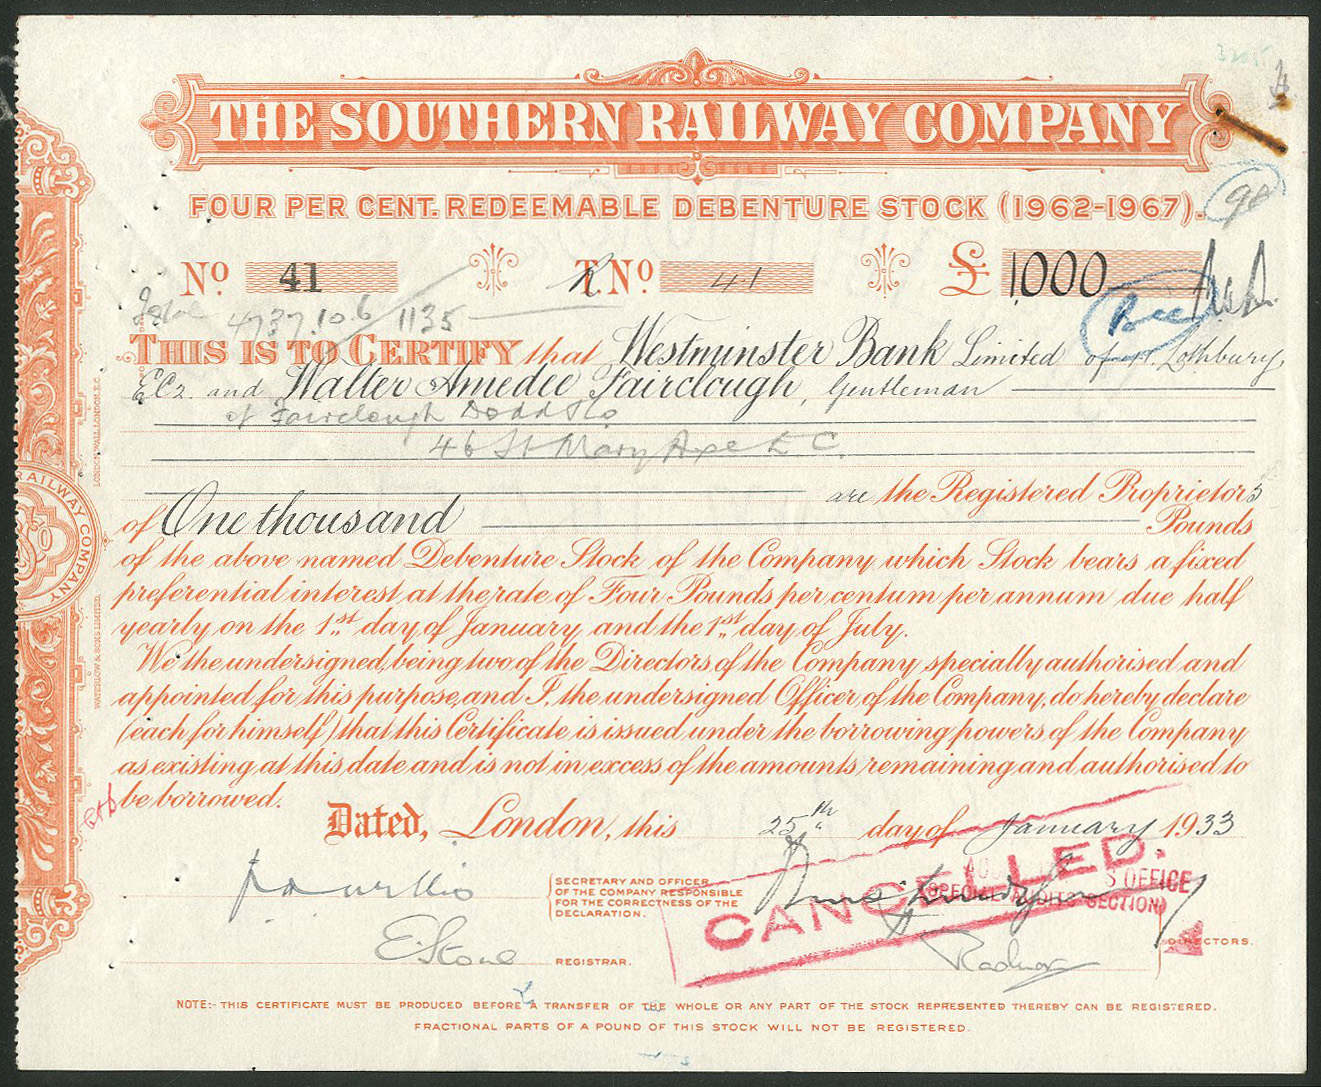 THE SOUTHERN RAILWAY COMPANY
FOUR PER CENT. REDEEMABLE DEBENTURE STOCK (1962-1967).
98
No 41 T No 41 £ 1000
4737.10.6 1135
THIS IS TO CERTIFY that Westminster Bank Limited of Lothbury
EC2. and Walter Amedee Fairclough, Gentleman
of Fairclough Dodd & Co
46 St Mary Axe E C.
are the Registered Proprietors
of One thousand Pounds
of the above named Debenture Stock of the Company which Stock bears a fixed
preferential interest at the rate of Four Pounds per centum per annum due half
yearly on the 1st day of January and the 1st day of July.
We the undersigned, being two of the Directors of the Company specially authorised and
appointed for this purpose, and I, the undersigned Officer of the Company, do hereby declare
(each for himself) that this Certificate is issued under the borrowing powers of the Company
as existing at this date and is not in excess of the amounts remaining and authorised to
be borrowed.
Dated, London, this 25th day of January 1933
CANCELLED.
S OFFICE
(SPECIAL AUDITS SECTION)
SECRETARY AND OFFICER
OF THE COMPANY RESPONSIBLE
FOR THE CORRECTNESS OF THE
DECLARATION.
E. Stone REGISTRAR.
Radnor
DIRECTORS.
NOTE:- THIS CERTIFICATE MUST BE PRODUCED BEFORE A TRANSFER OF THE WHOLE OR ANY PART OF THE STOCK REPRESENTED THEREBY CAN BE REGISTERED.
FRACTIONAL PARTS OF A POUND OF THIS STOCK WILL NOT BE REGISTERED.
RAILWAY COMPANY
WATERLOW & SONS LIMITED,
LONDON WALL, LONDON, E.C.